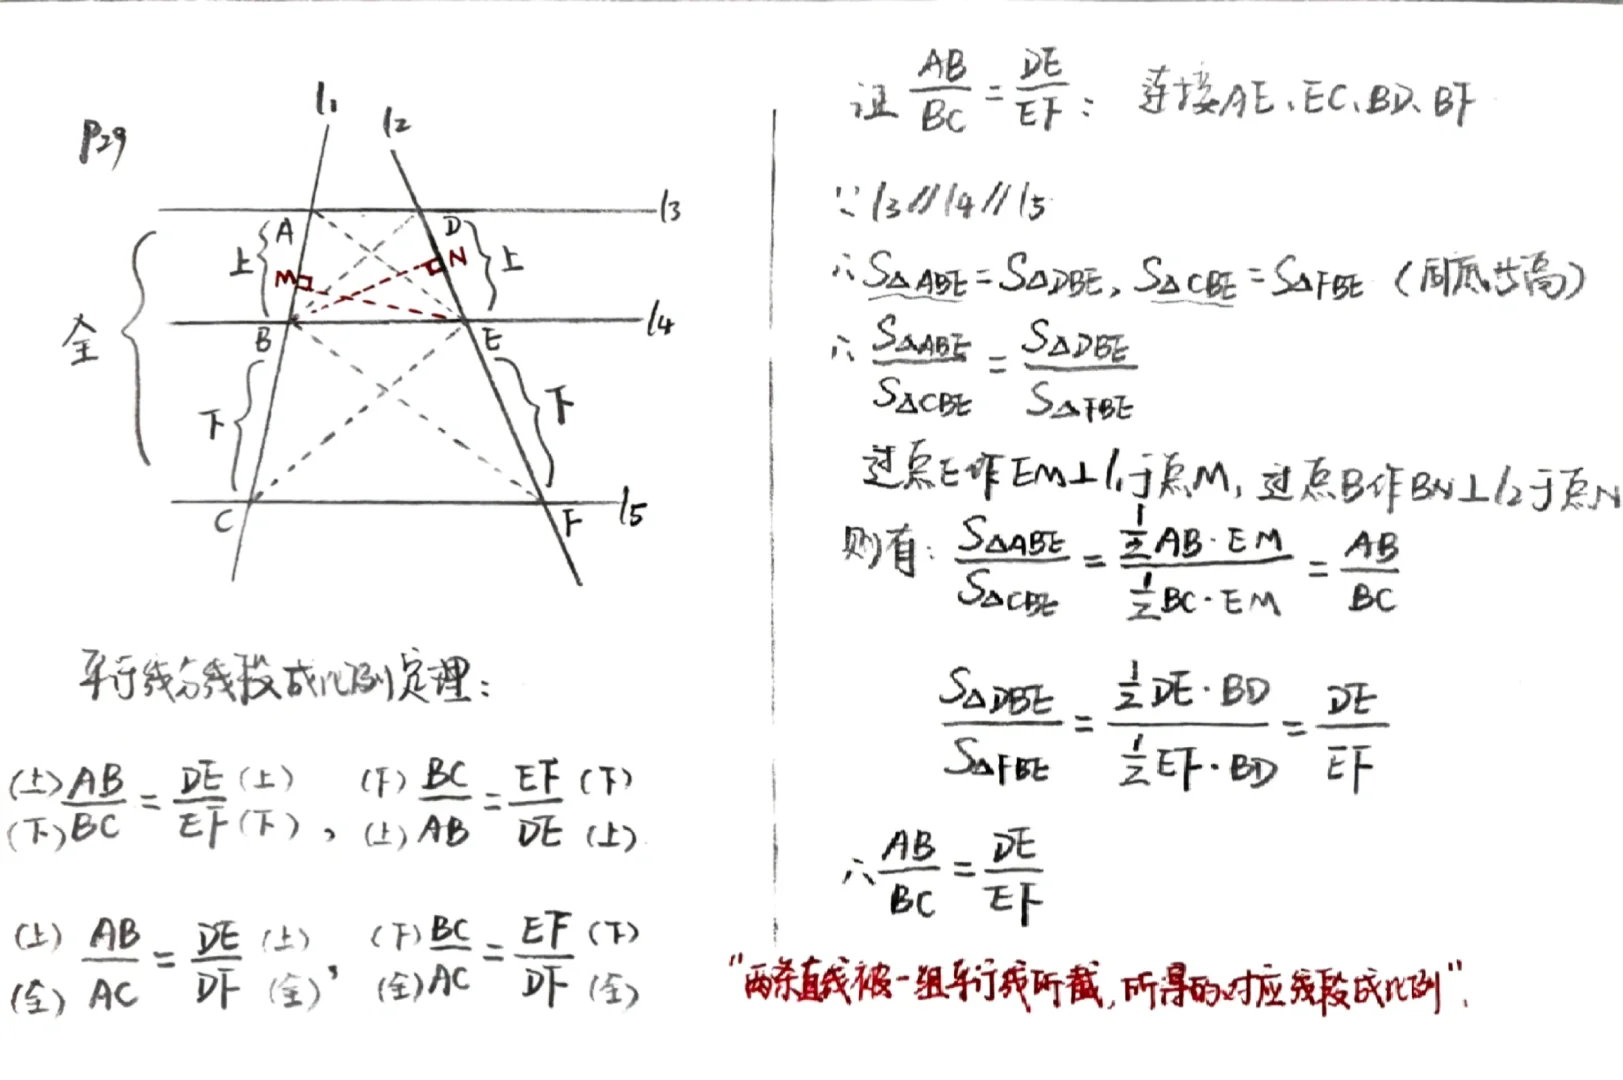 P29
l1
l2
l3
A
D
上
M
N
上
全
l4
B
E
下
下
C
F
l5
平行线分线段成比例定理:
(上)AB/(下)BC = DE(上)/EF(下), (下)BC/(上)AB = EF(下)/DE(上)
(上)AB/(全)AC = DE(上)/DF(全), (下)BC/(全)AC = EF(下)/DF(全)
证 AB/BC = DE/EF: 连接AE、EC、BD、BF
∵ l3∥l4∥l5
∴ S△ABE = S△DBE, S△CBE = S△FBE (同底等高)
∴ S△ABE/S△CBE = S△DBE/S△FBE
过点E作EM⊥l1于点M, 过点B作BN⊥l2于点N
则有: S△ABE/S△CBE = ½AB·EM/½BC·EM = AB/BC
S△DBE/S△FBE = ½DE·BD/½EF·BD = DE/EF
∴ AB/BC = DE/EF
"两条直线被一组平行线所截, 所得的对应线段成比例".